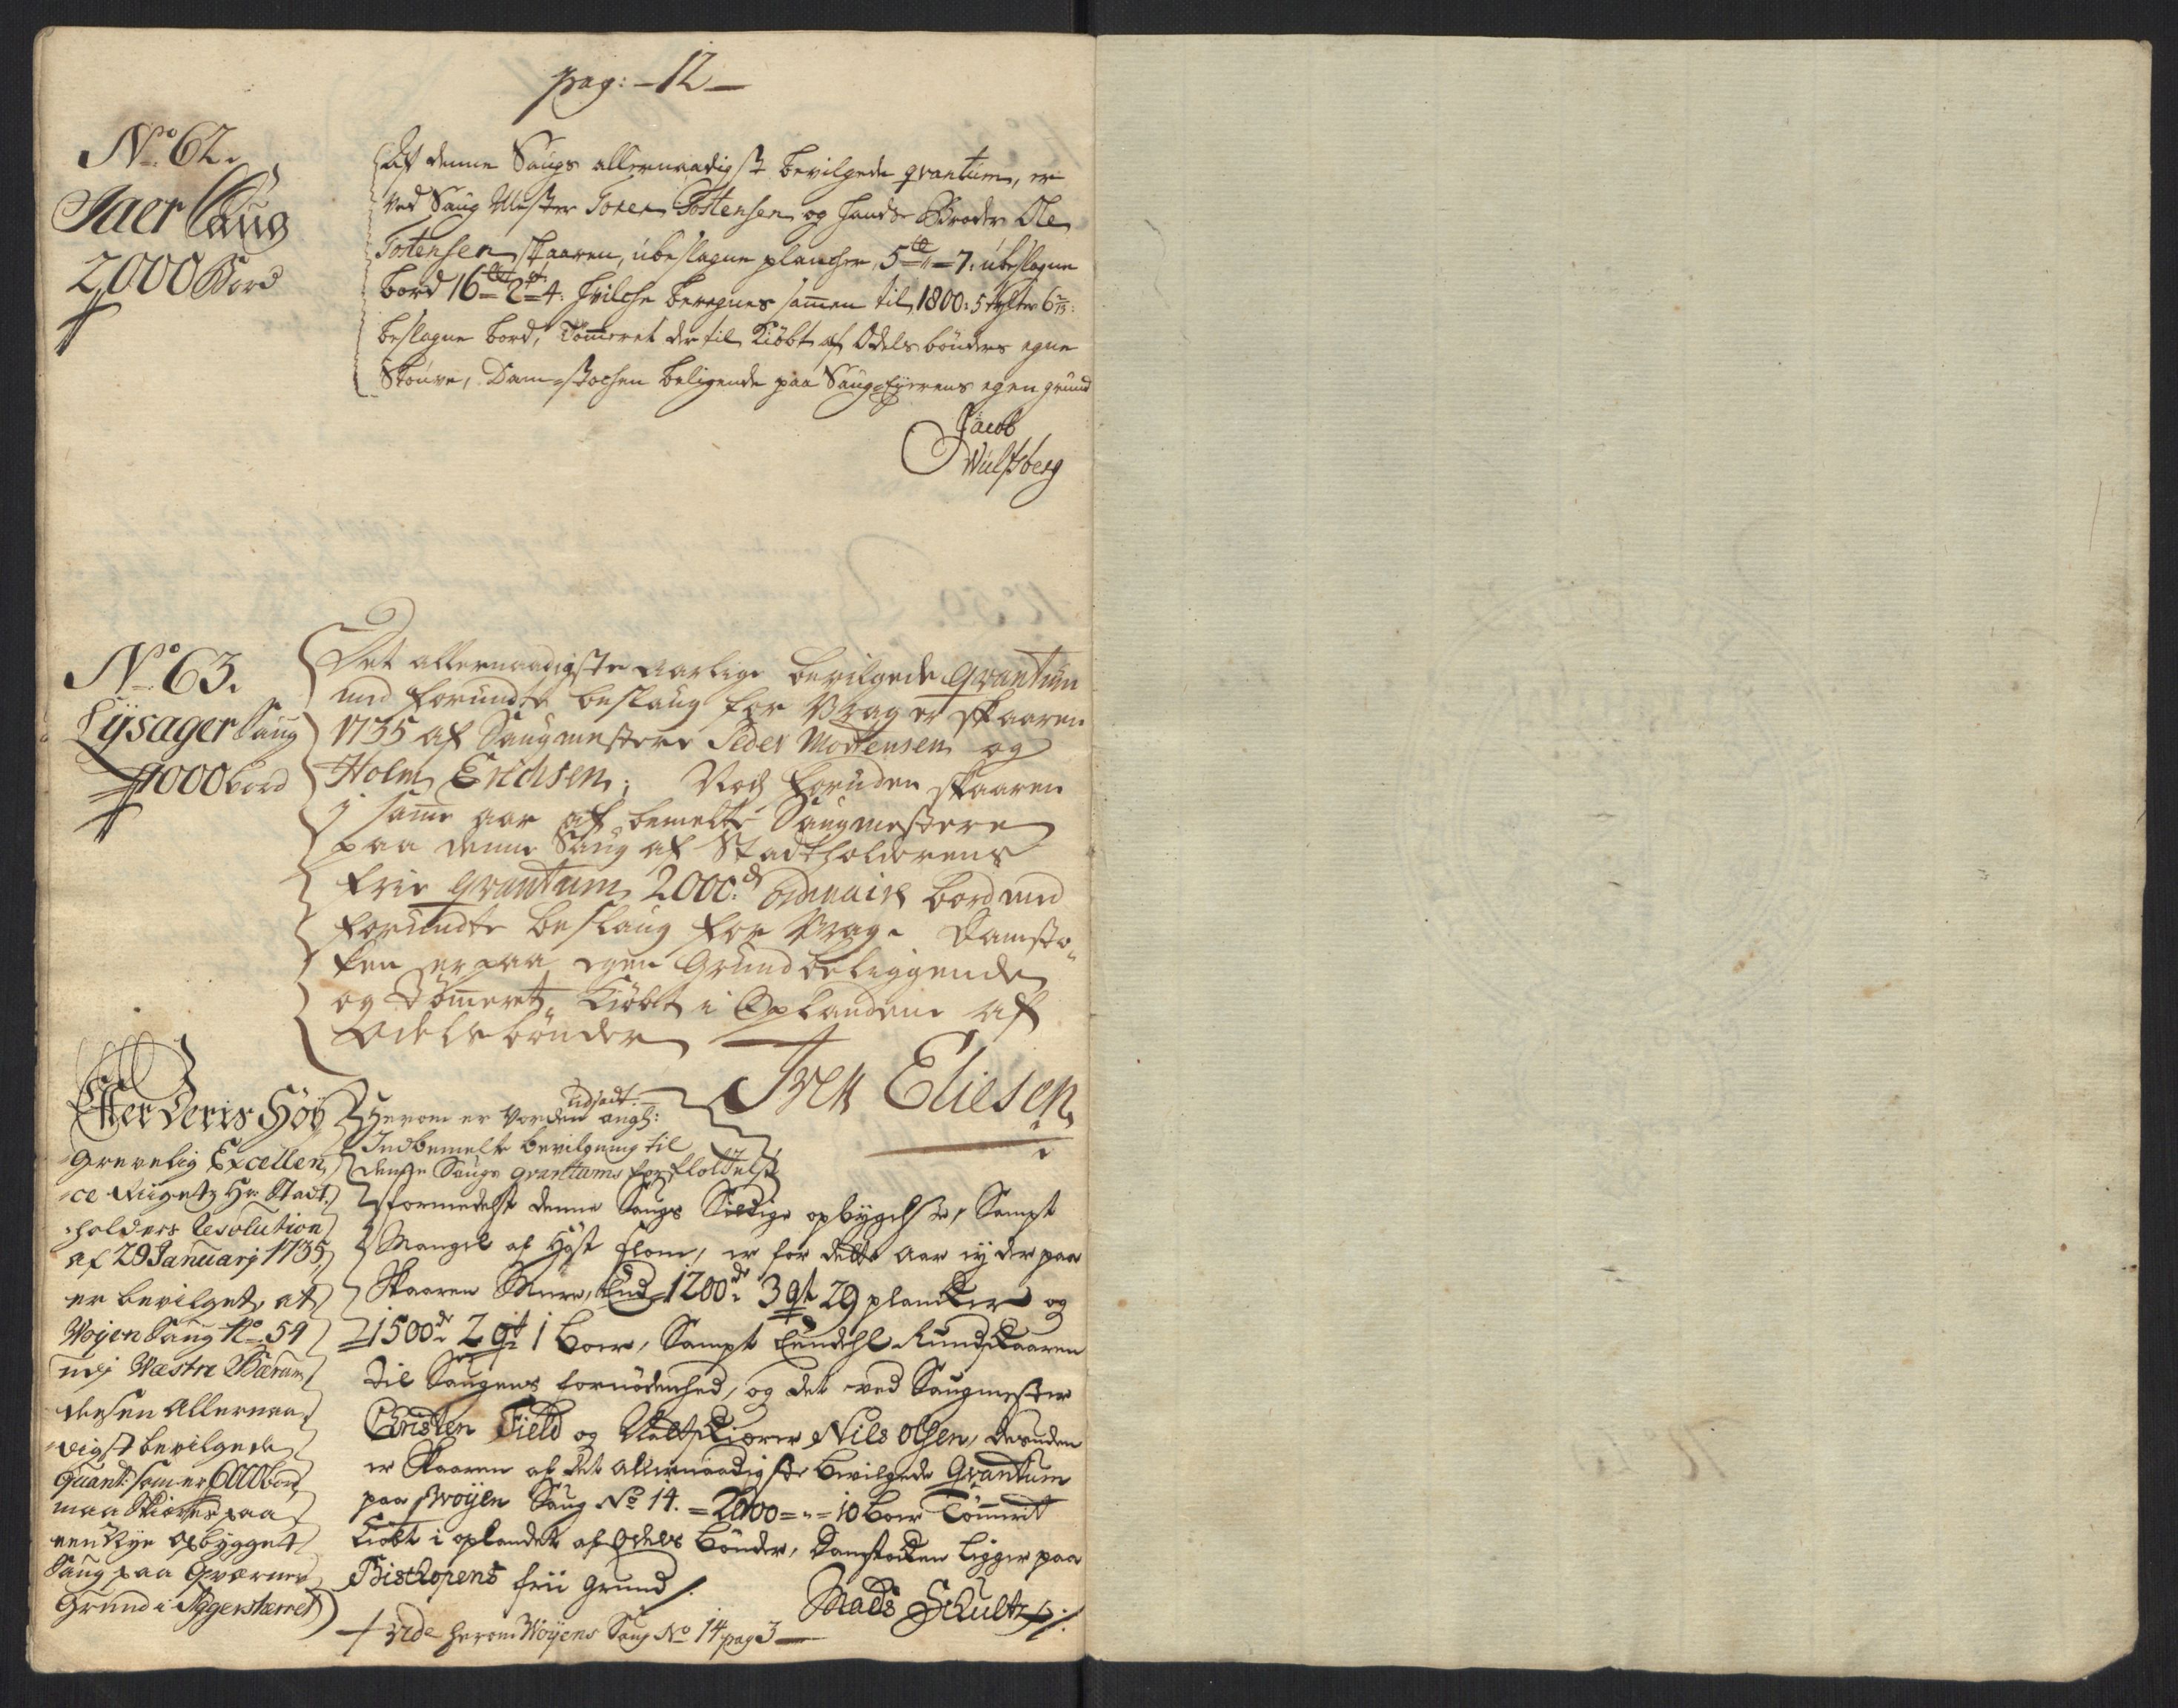 pag: -12-
No 62.
Saer Saug
2000 Bord
Af denne Saugs allernaadigst bevilgede qvantum, er
ved Saug Mester Soren Tostensen og hands Broder Ole
Tostensen skaaren, ubeslagne plancher, 5 7: ubeslagne
bord 16 2 4: hvilche beregnes sammen til 1800: 5 tylter 6
beslagne bord, Tømmeret der til kiøbt af Odelsbønders egne
Skouve, Dam-stochen beligende paa Saug-Eyerens egen grund
Jacob
Wulfsberg
No 63.
Lysager Saug
4000 bord
Det allernaadigste aarlige bevilgede qvantum
med forundte beslaug for Vrag er skaaren
1735 af Saugmestere Peder Mortensen og
Holm Erichsen; Noch foruden skaaren
i samme aar af bemelte Saugmestere
paa denne Saug af Stadtholderens
frie qvantum 2000: ordinaire bord med
forundte beslaug for Vrag. Damsto-
ken er paa egen Grund beliggende
og Tømmeret kiøbt i Oplandene af
Odelsbønder
Iver Eliesen
Efter Deris Høy
Grevelig Excellen
ce Riigets Hr. Stadt-
holders Resolution
af 29 Januarj 1735,
er bevilget, at
Woyen Saug No 59
udj Westre Bærum
desen Allernaa-
digst bevilgede
Quant: som er 6000 bord
maa skiæres paa
een Nye opbygget
Saug paa Qværner
Grund i Aggersherret
Herom er vorden udsadt angl:
Indbemelte bevilgning til
denne Saugs qvantums forflottelse
formedelst denne Saugs Sildige opbygelse, Sampt
Mangel af Høst flom, er for dette aar ey der paa
Skaaren Meere, End 1200de 3 qt 29 plancker og
1500de 2 qt 1 boer, Sampt Eendehl Rundskaaren
til Saugens fornødenhed, og det ved Saugmester
Christen Field og Nils Olsen, desuden
er skaaren af det allernaadigste bevilgede Qvantum
paa Woyen Saug No 14. = 2000 = " = 10 boer Tømmeret
kiøbt i oplandet af Odels Bønder, Damstocken ligger paa
Bischopens frii Grund /.
Mads Schultz
+ vide herom Woyens Saug No 14 pag 3